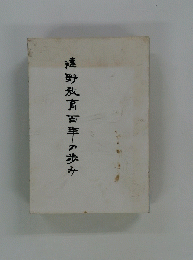 遠野教育百年の歩み